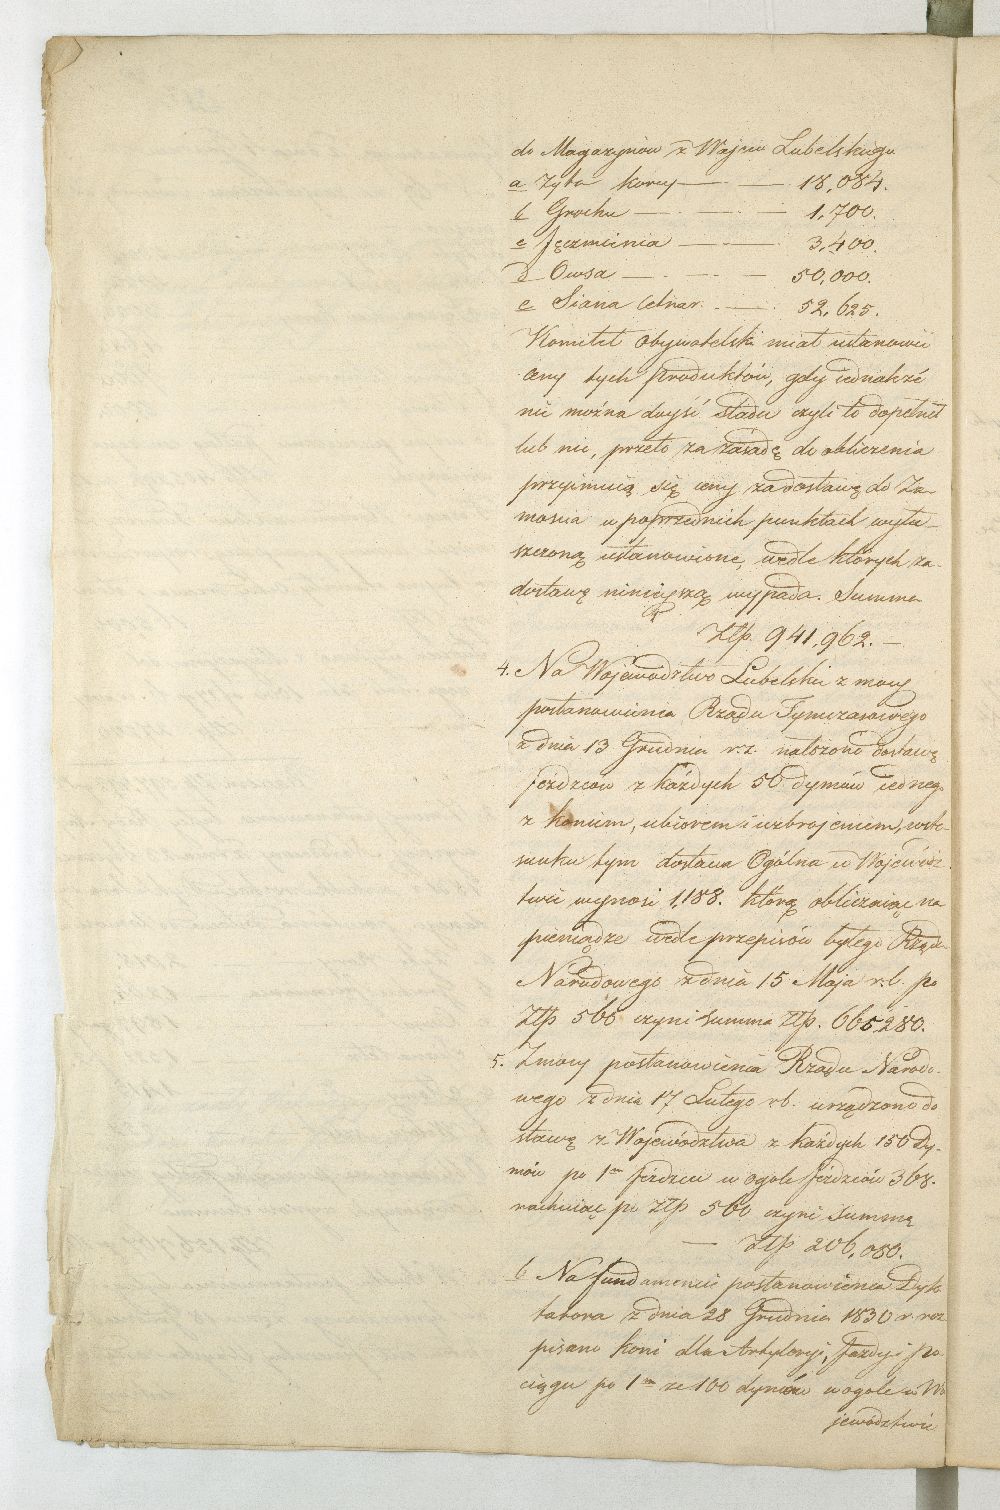 do Magazynów z Wojew Lubelskiego
a Żyta korcy — — 18,084.
b Grochu — — — 1,700.
c Jęczmienia — — 3,400.
d Owsa — — — 50,000.
e Siana Cetnar. — 52,625.
Komitet obywatelski miał ustanowić
ceny tych produktów, gdy iednakże
nie można doyść śladu czyli to dopełnił
lub nie, przeto za zasadę do obliczenia
przyimuią się ceny za dostawę do Za-
mościa w poprzednich punktach wytu-
szczoną ustanowione, wedle których za
dostawę ninieyszą wypada. Summa
Złp. 941,962. —
4. Na Województwo Lubelskie z mocy
postanowienia Rządu Tymczasowego
z dnia 13 Grudnia r. z. nałożono dostawę
Jeźdzców z każdych 50 dymów iednego
z koniem, ubiorem i uzbrojeniem, w sto-
sunku tym dostawa Ogólna w Wojewódz
twie wynosi 1,188. którą obliczaiąc na
pieniądze wedle przepisów byłego Rządu
Narodowego z dnia 15 Maja r. b. po
Złp 560 czyni summa Złp. 665,280.
5. Z mocy postanowienia Rządu Narodo-
wego z dnia 17 Lutego r. b. urządzono do
stawę z Województwa z każdych 150 Dy-
mów po 1m Jeźdzcu w ogole Jeźdzców 368.
rachuiąc po Złp 560 czyni Summą
— Złp 206,080.
6 Na fundamencie postanowienia Dyk
tatora z dnia 28 Grudnia 1830 r. roz
pisano koni dla Artyleryi, Jazdy i po
ciągu po 1m ze 100 dymów w ogole w Wo
jewództwie